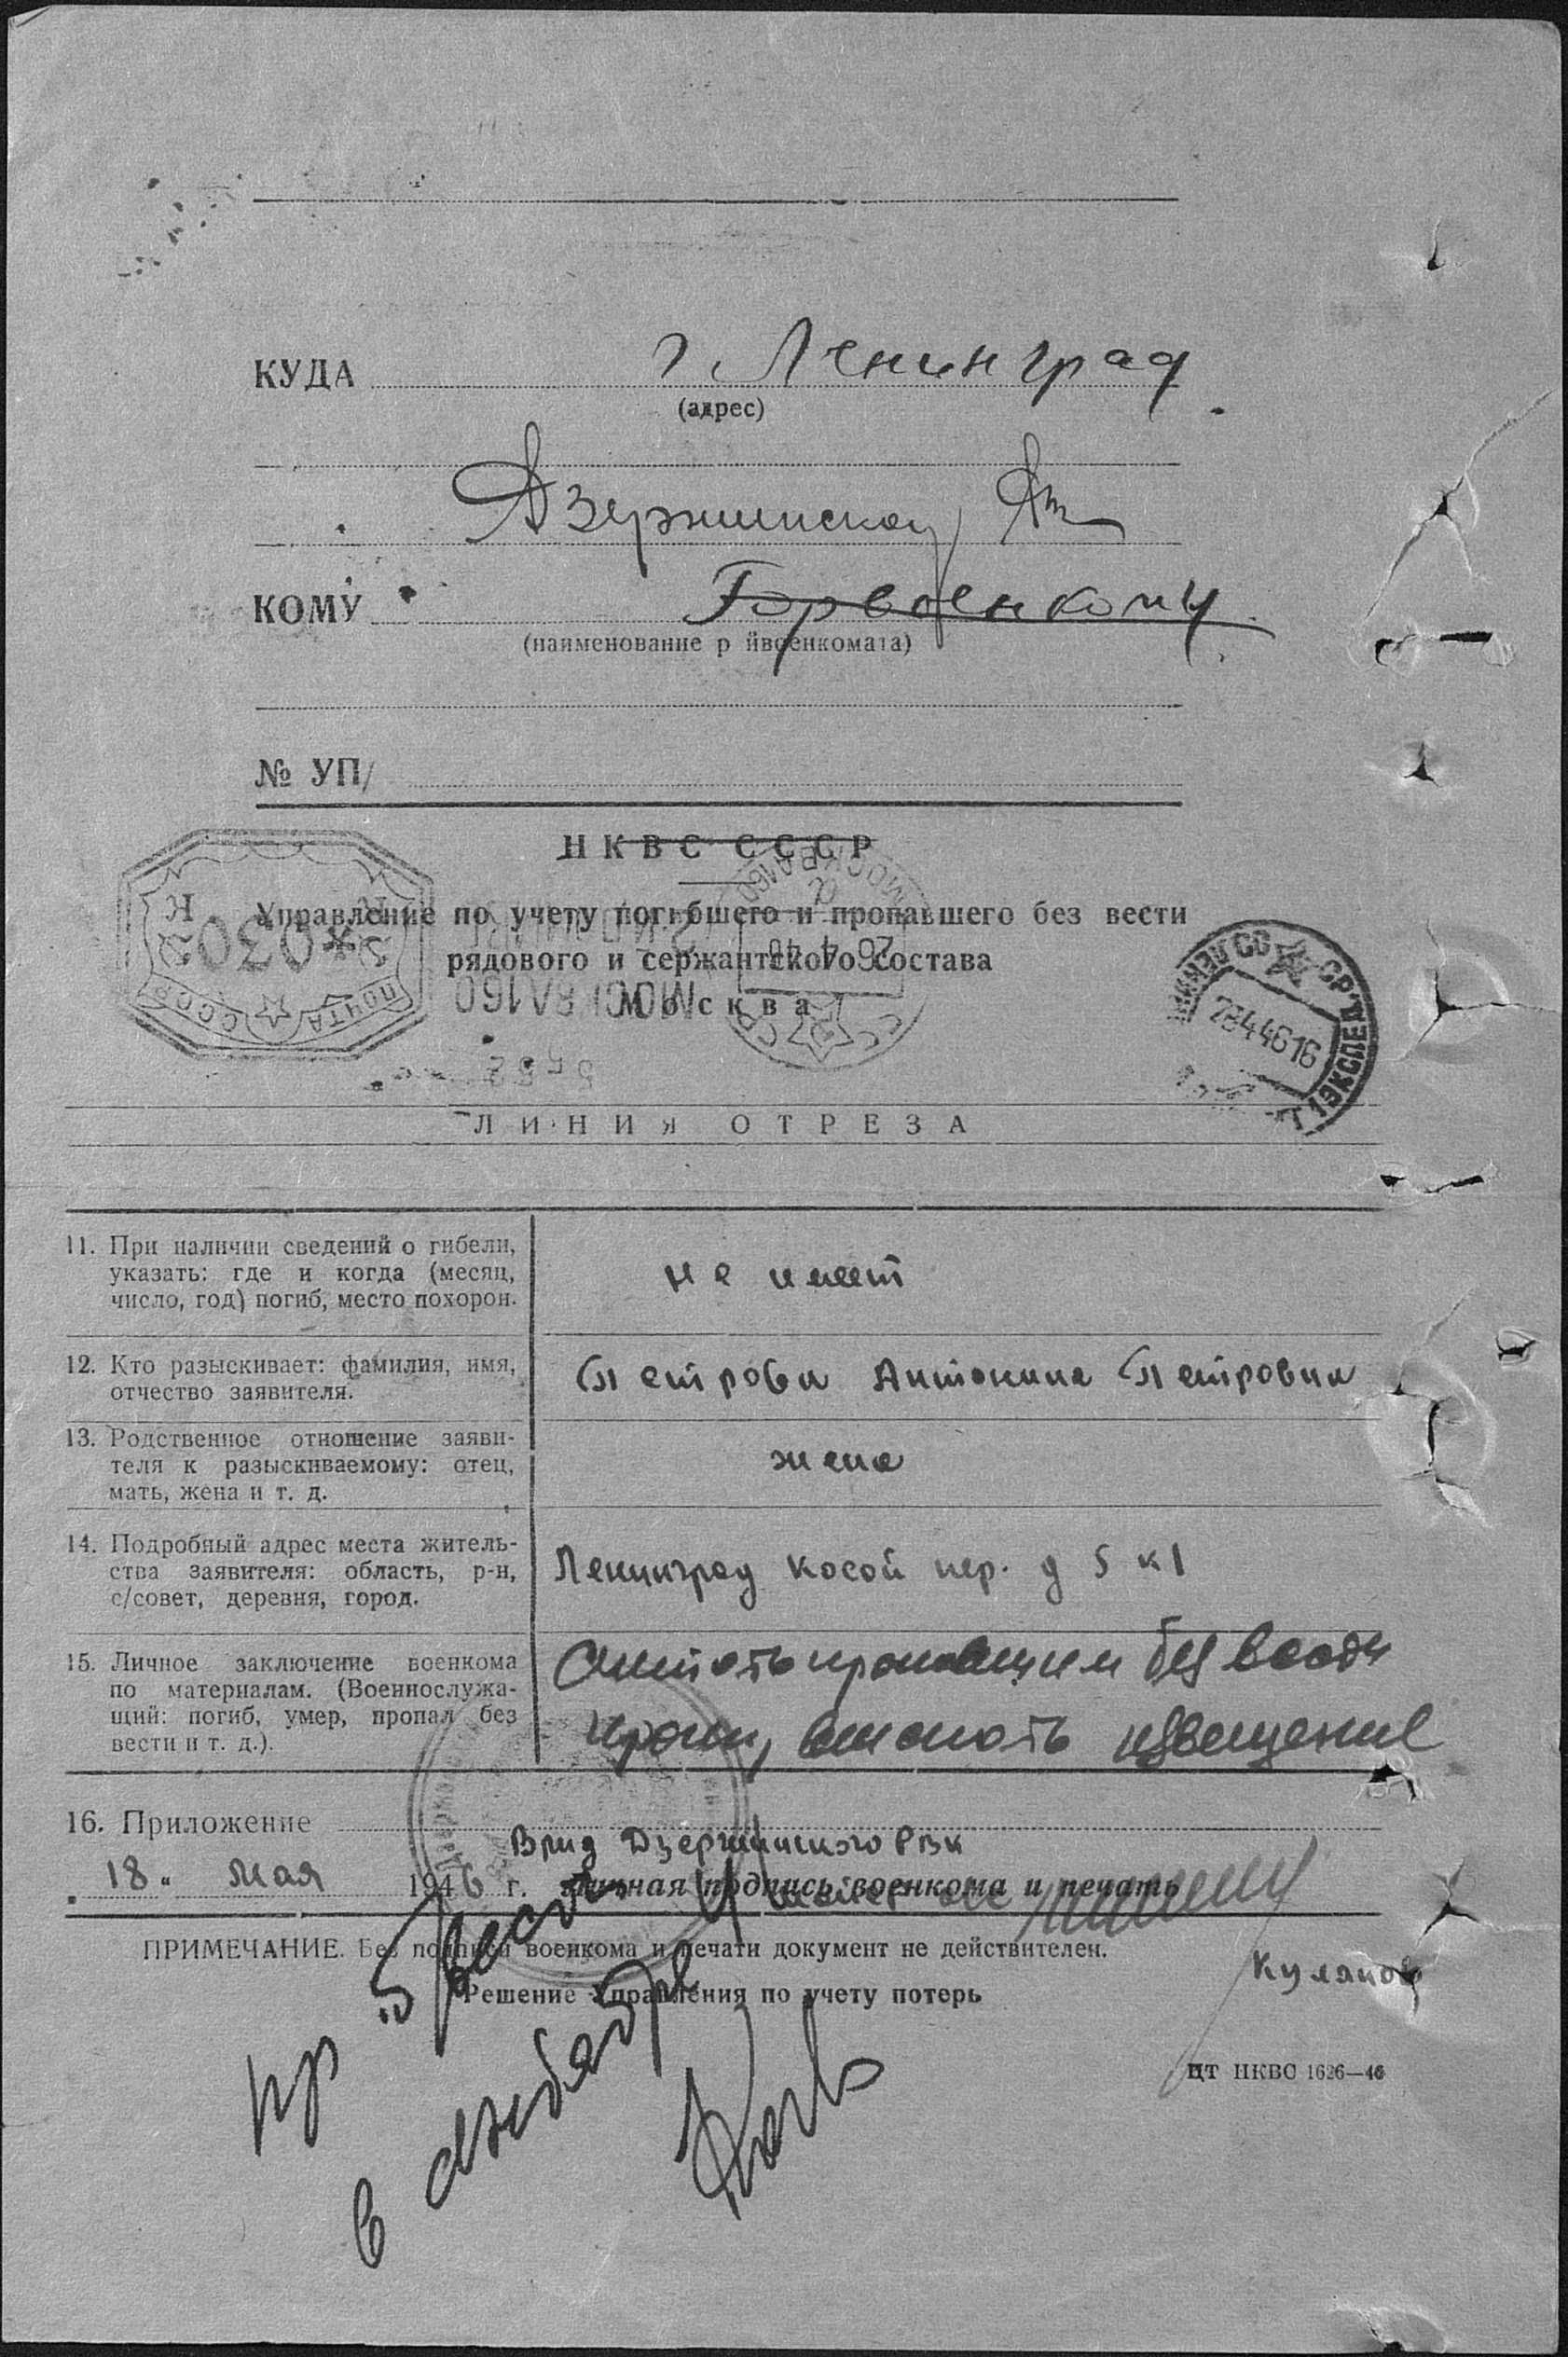 КУДА г Ленинград
(адрес)
Дзержинскому
КОМУ Горвоенкому
(наименование р йвоенкомата)
№ УП/
НКВС СССР
Управление по учету погибшего и пропавшего без вести
рядового и сержантского состава
Москва
МОСКВА 160
26 4 46
*030
К К
ПОЧТА СССР
МОСКВА 160
ЛЕНИНГ СССР 1 ЭКСПЕД
28 4 46 16
ЛИНИЯ ОТРЕЗА
11. При наличии сведений о гибели,
указать: где и когда (месяц,
число, год) погиб, место похорон.
не имеет
12. Кто разыскивает: фамилия, имя,
отчество заявителя.
Петрова Антонина Петровна
13. Родственное отношение заяви-
теля к разыскиваемому: отец,
мать, жена и т. д.
жена
14. Подробный адрес места житель-
ства заявителя: область, р-н,
с/совет, деревня, город.
Ленинград Косой пер. д 5 к 1
15. Личное заключение военкома
по материалам. (Военнослужа-
щий: погиб, умер, пропал без
вести и т. д.).
Считать пропавшим без вести
прошу выслать извещение
16. Приложение
Врид Дзержинского РВК
„18" мая 1946 г. Личная подпись военкома и печать
майор а/с
ПРИМЕЧАНИЕ. Без подписи военкома и печати документ не действителен.
Кулаков
Решение Управления по учету потерь
пр б/вести
в декабре 41
ЦТ НКВС 1626—46